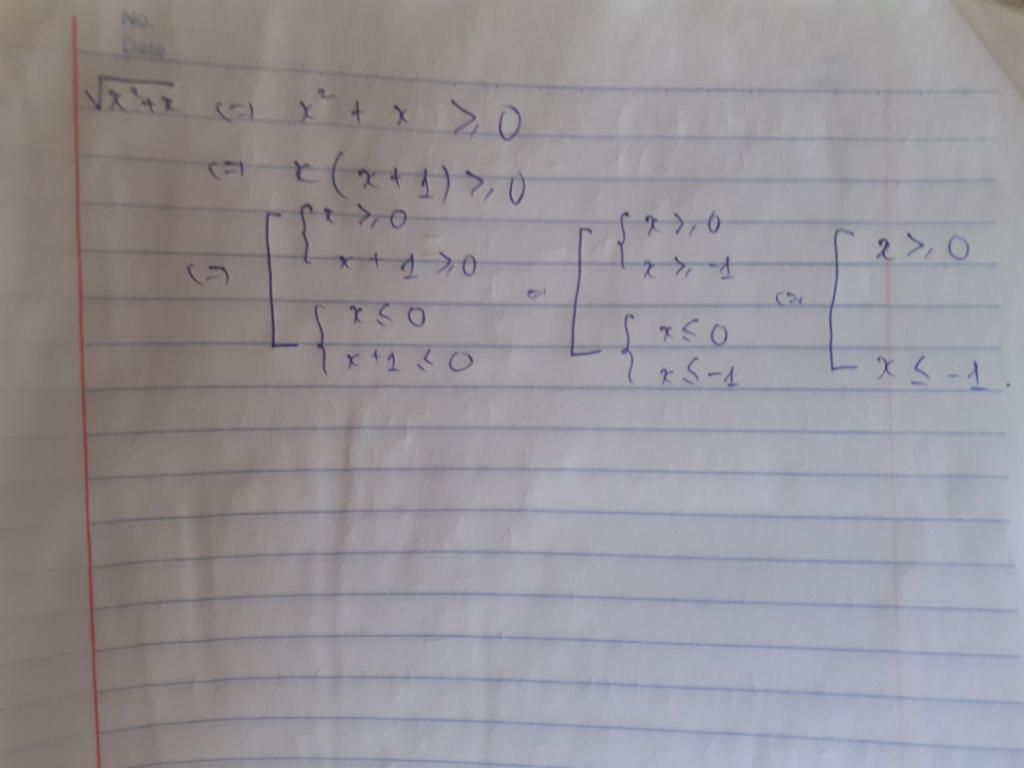 No.
Date
√(x²+x) (=) x² + x ≥ 0
(=) x (x+1) ≥ 0
(=) [ { x ≥ 0 (=) [ { x ≥ 0 (=) [ x ≥ 0
x + 1 ≥ 0 x ≥ -1
{ x ≤ 0 { x ≤ 0
x+1 ≤ 0 x ≤ -1 x ≤ -1.